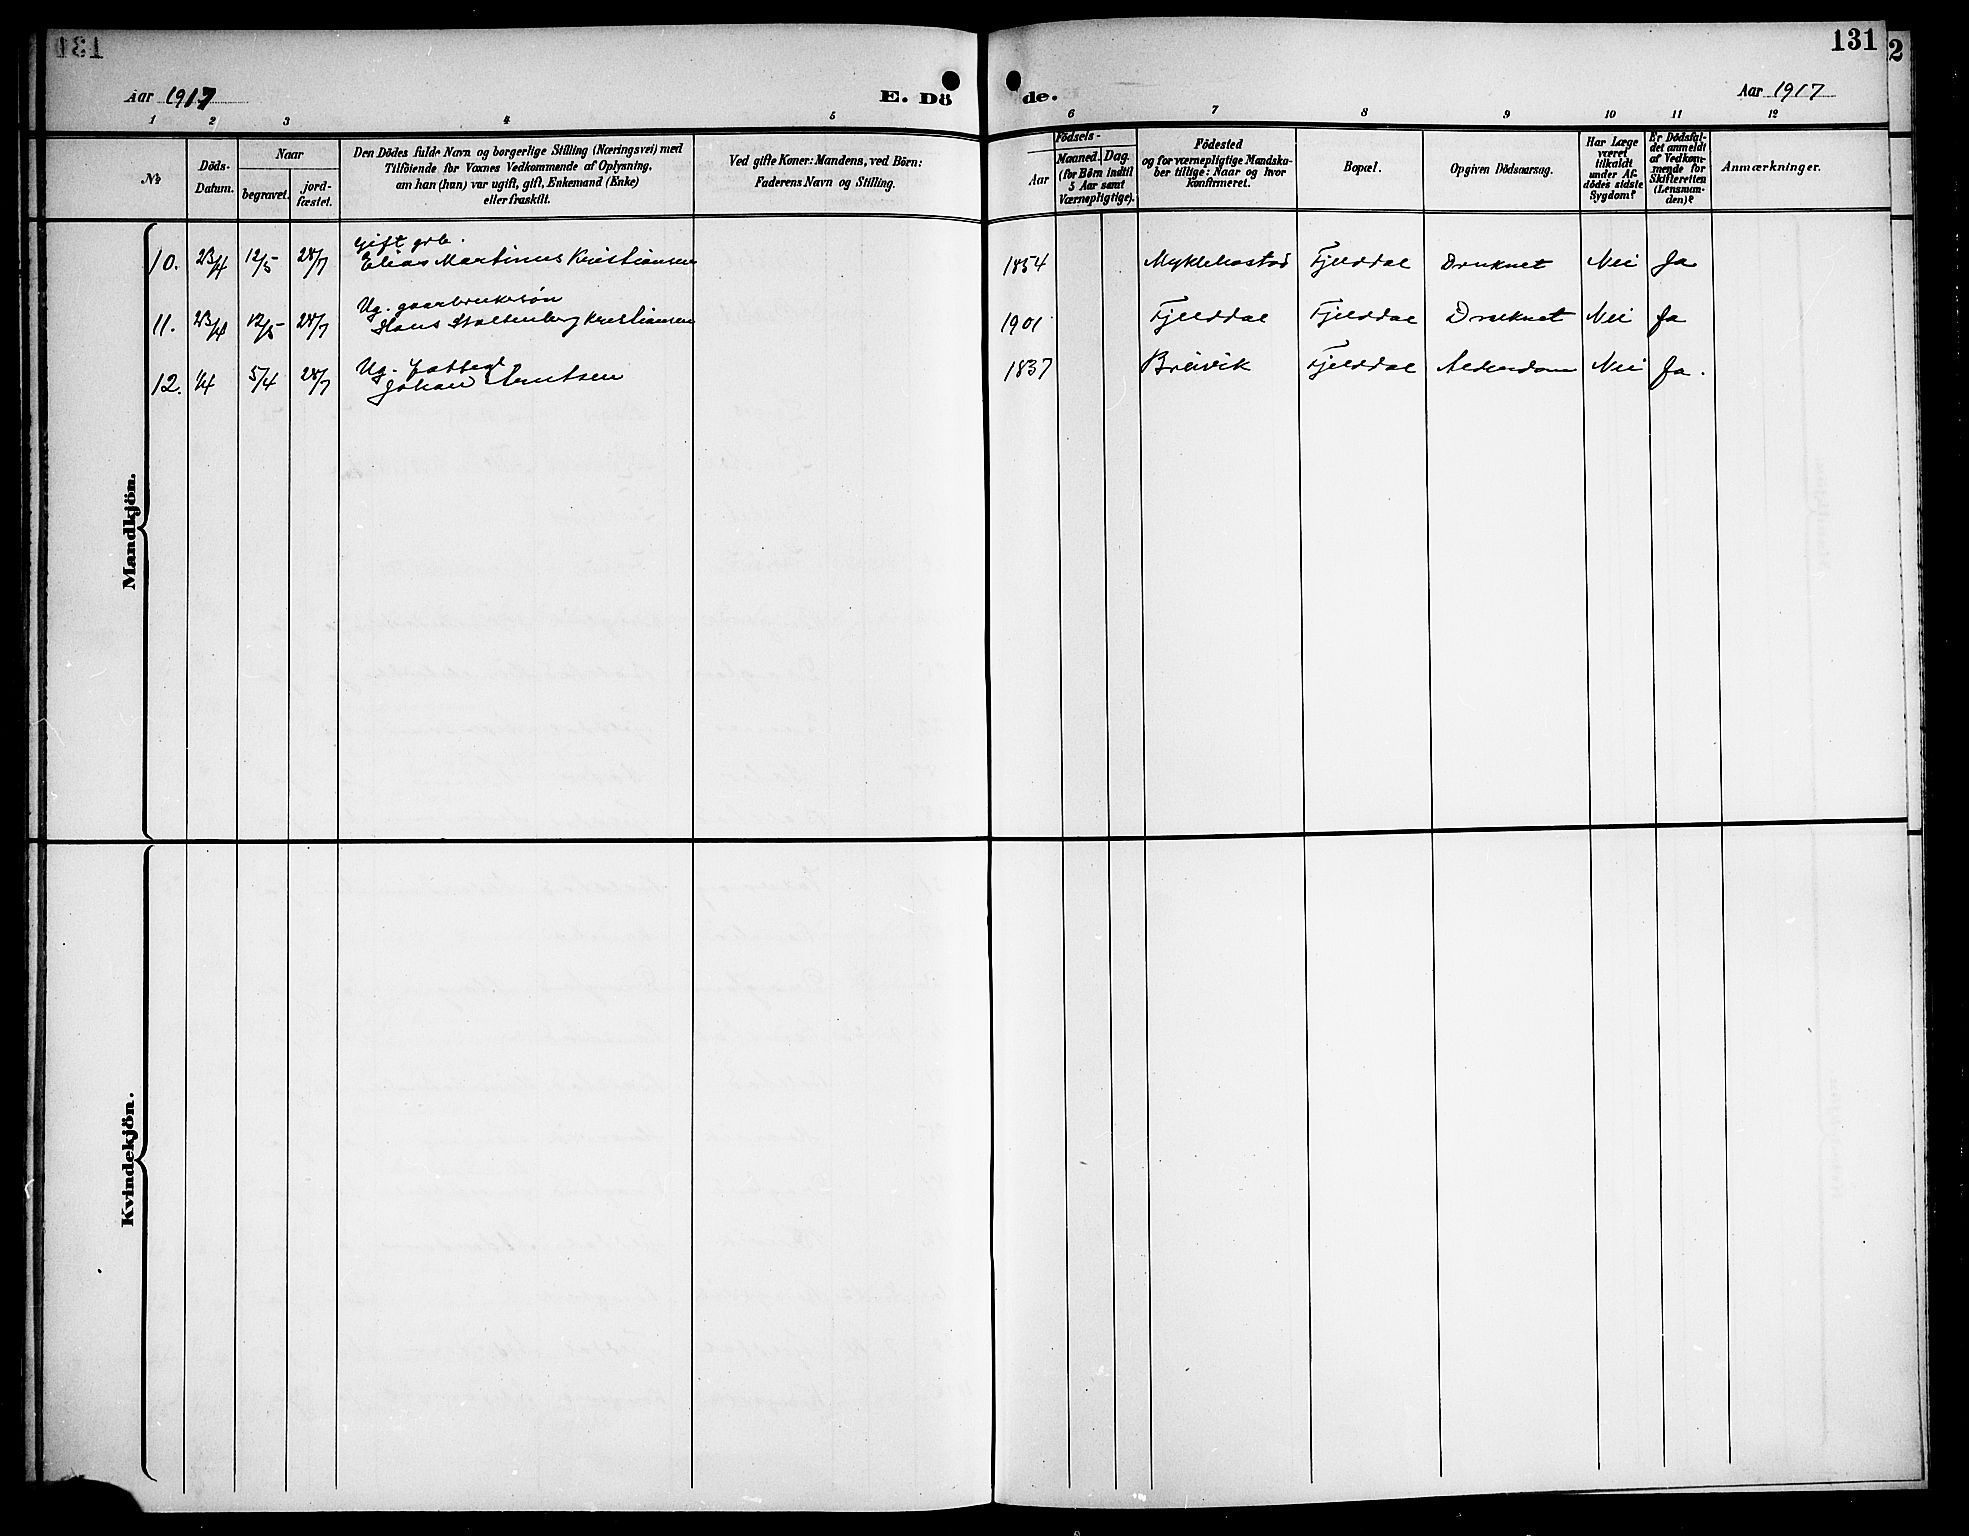 131
Aar 1917
E. Dö
de.
Aar 1917
131
2
1 2 3 4 5 6 7 8 9 10 11 12
№
Döds-
Datum.
Naar
begravet.
jord-
fæstet.
Den Dödes fulde Navn og borgerlige Stilling (Næringsvei) med
Tilföiende for Voxnes Vedkommende af Oplysning,
om han (hun) var ugift, gift, Enkemand (Enke)
eller fraskilt.
Ved gifte Koner: Mandens, ved Börn:
Faderens Navn og Stilling.
Födsels-
Aar
Maaned. Dag.
(for Börn indtil
5 Aar samt
Værnepligtige).
Födested
og for værnepligtige Mandska-
ber tillige: Naar og hvor
Konfirmeret.
Bopæl.
Opgiven Dödsaarsag.
Har Læge
været
tilkaldt
under Af-
dödes sidste
Sygdom?
Er Dödsfal-
det anmeldt
af Vedkom-
mende for
Skifteretten
(Lensman-
den)?
Anmærkninger.
Mandkjön.
Gift grb.
10. 23/4 12/5 28/7 Elias Martinus Kristiansen 1854 Myklebostad Fjelddal Druknet Nei Ja
Ug. gaarbrukersøn
11. 23/4 12/5 28/7 Hans Stoltenberg Kristiansen 1901 Fjelddal Fjelddal Druknet Nei Ja
Ug.
12. 1/4 5/4 28/7 Johan Arntsen 1837 Breivik Fjelddal Alderdom Nei Ja.
Kvindekjön.